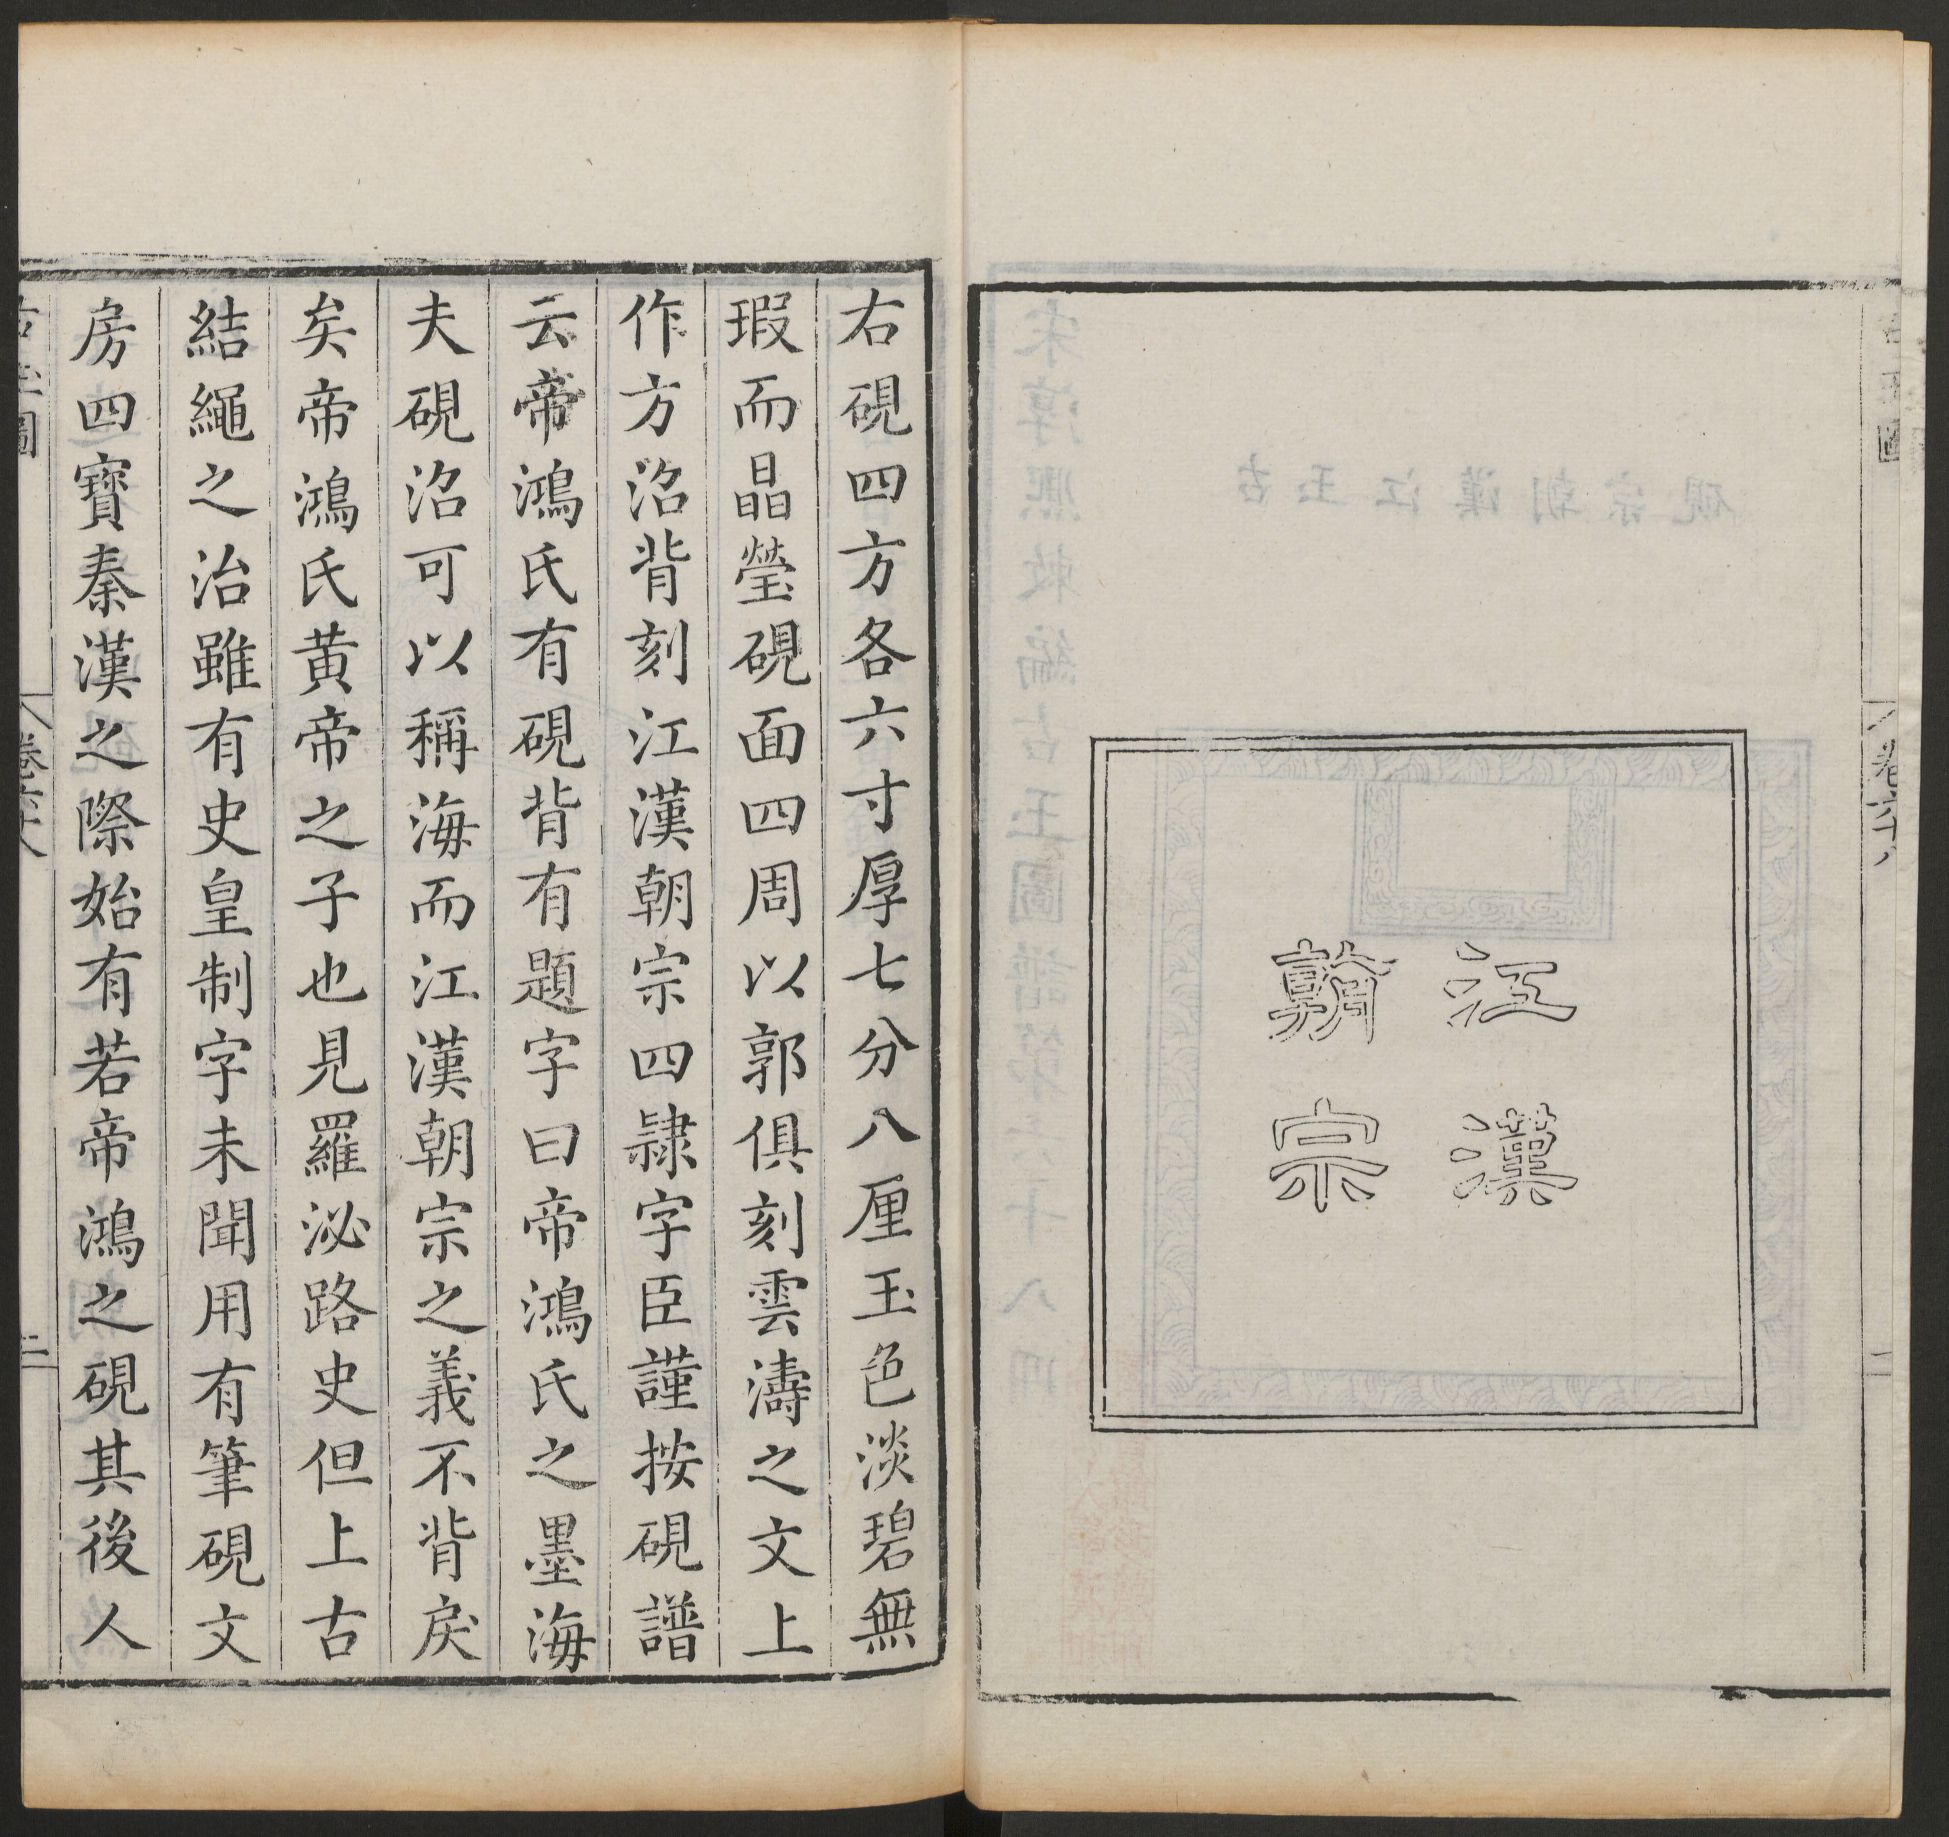 江漢
朝宗
右硯四方各六寸厚七分八厘玉色淡碧無
瑕而晶瑩硯面四周以郭俱刻雲濤之文上
作方沼背刻江漢朝宗四隸字臣謹按硯譜
云帝鴻氏有硯背有題字曰帝鴻氏之墨海
夫硯沼可以稱海而江漢朝宗之義不背戾
矣帝鴻氏黄帝之子也見羅泌路史但上古
結繩之治雖有史皇制字未聞用有筆硯文
房四寶秦漢之際始有若帝鴻之硯其後人